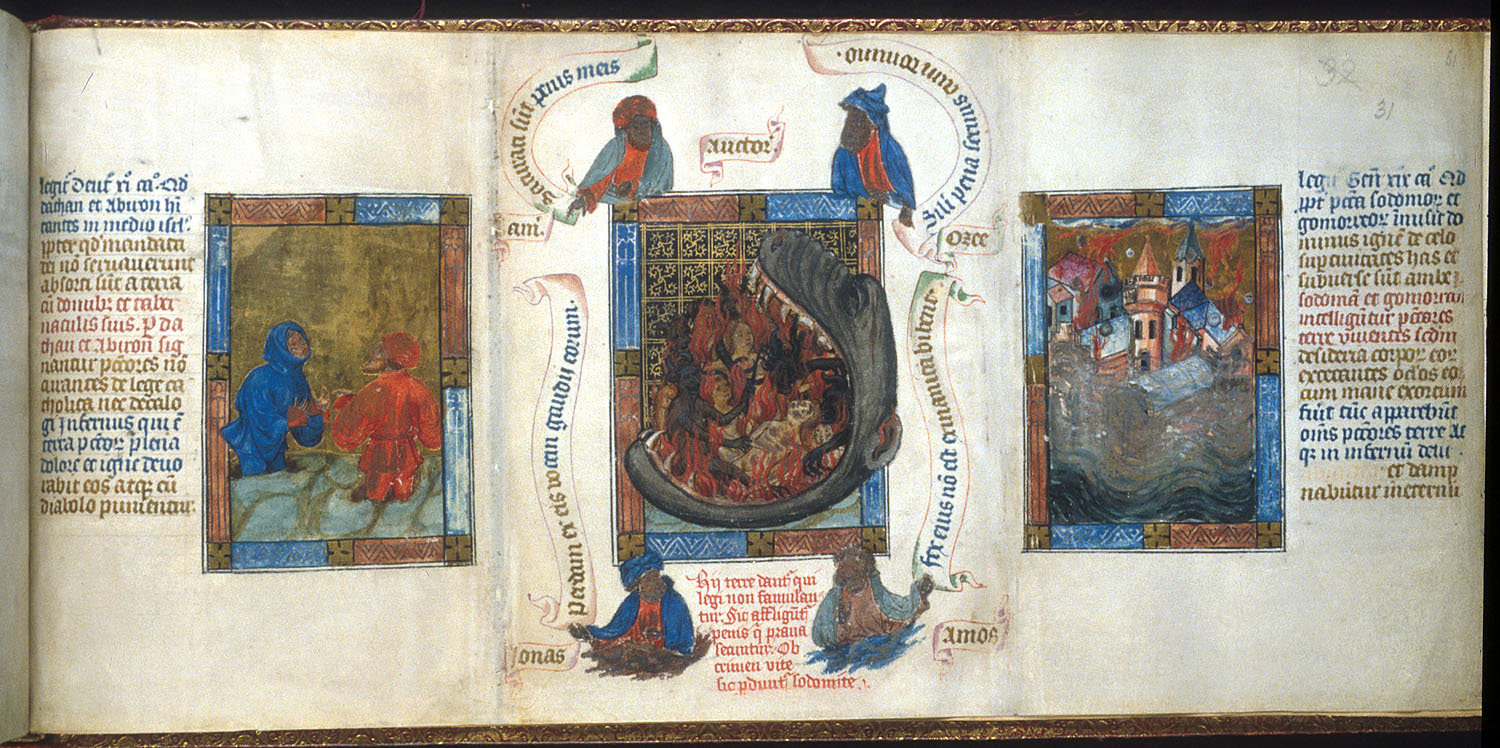 legit᷑ Deut᷑ xi cͣ. Qd
dathan et Abiron hi
tantes in medio isrl᷑.
ꝓpter qd᷑ mandata
dei nō seruauerunt
absorti sūt a terra
cū domibꝫ et taber
naculis suis. P da
than et Abiron sig
nantur pctores nō
curantes de lege ca
tholica nec decalo
gi Infernus qui ē
terra pctorꝫ plena
dolore et igne deuo
rabit eos atqꝫ cū
diabolo punientur.
Saturati sūt penis meis
am᷑.
Auctor᷑.
Sili pena seruus
Ozee
Perdam ex eis vocem gaudij eorum.
fex eius nō est
Hij terre dant᷑ qui
legi non famulan
tur. Sic affligūt᷑
penis q̄ praua
secuntur. Ob
crimen vite
sic pdunt᷑ sodomite.
Jonas
Amos
32
31
legit᷑ Gen᷑ xix cͣ Qd
ꝓpt᷑ pcta sodomorꝫ et
gomorreorꝫ īmisit do
minus ignē de celo
sup ciuitates has et
subuerse sūt ambe
sodomā et gomorrā
intelligūtur pctores
terre viuentes scdm
desideria corporꝫ eorꝫ
execantes oclos eo
cum mane exortum
fuīt tūc apparebūt
om̄s pctores terre Ac
qꝫ in infernū
et damp
nabūtur in eternū